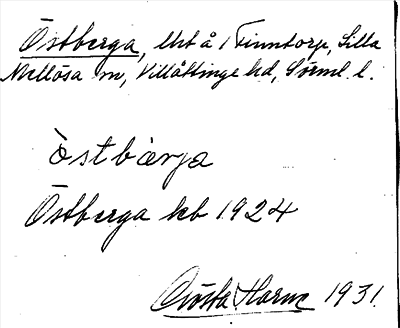 Östberga, lht å 1 Finntorp, Lilla
Mellösa sn, Villåttinge hd, Sörml. l.
östbärja
Östberga kb 1924
Gösta Harne 1931.